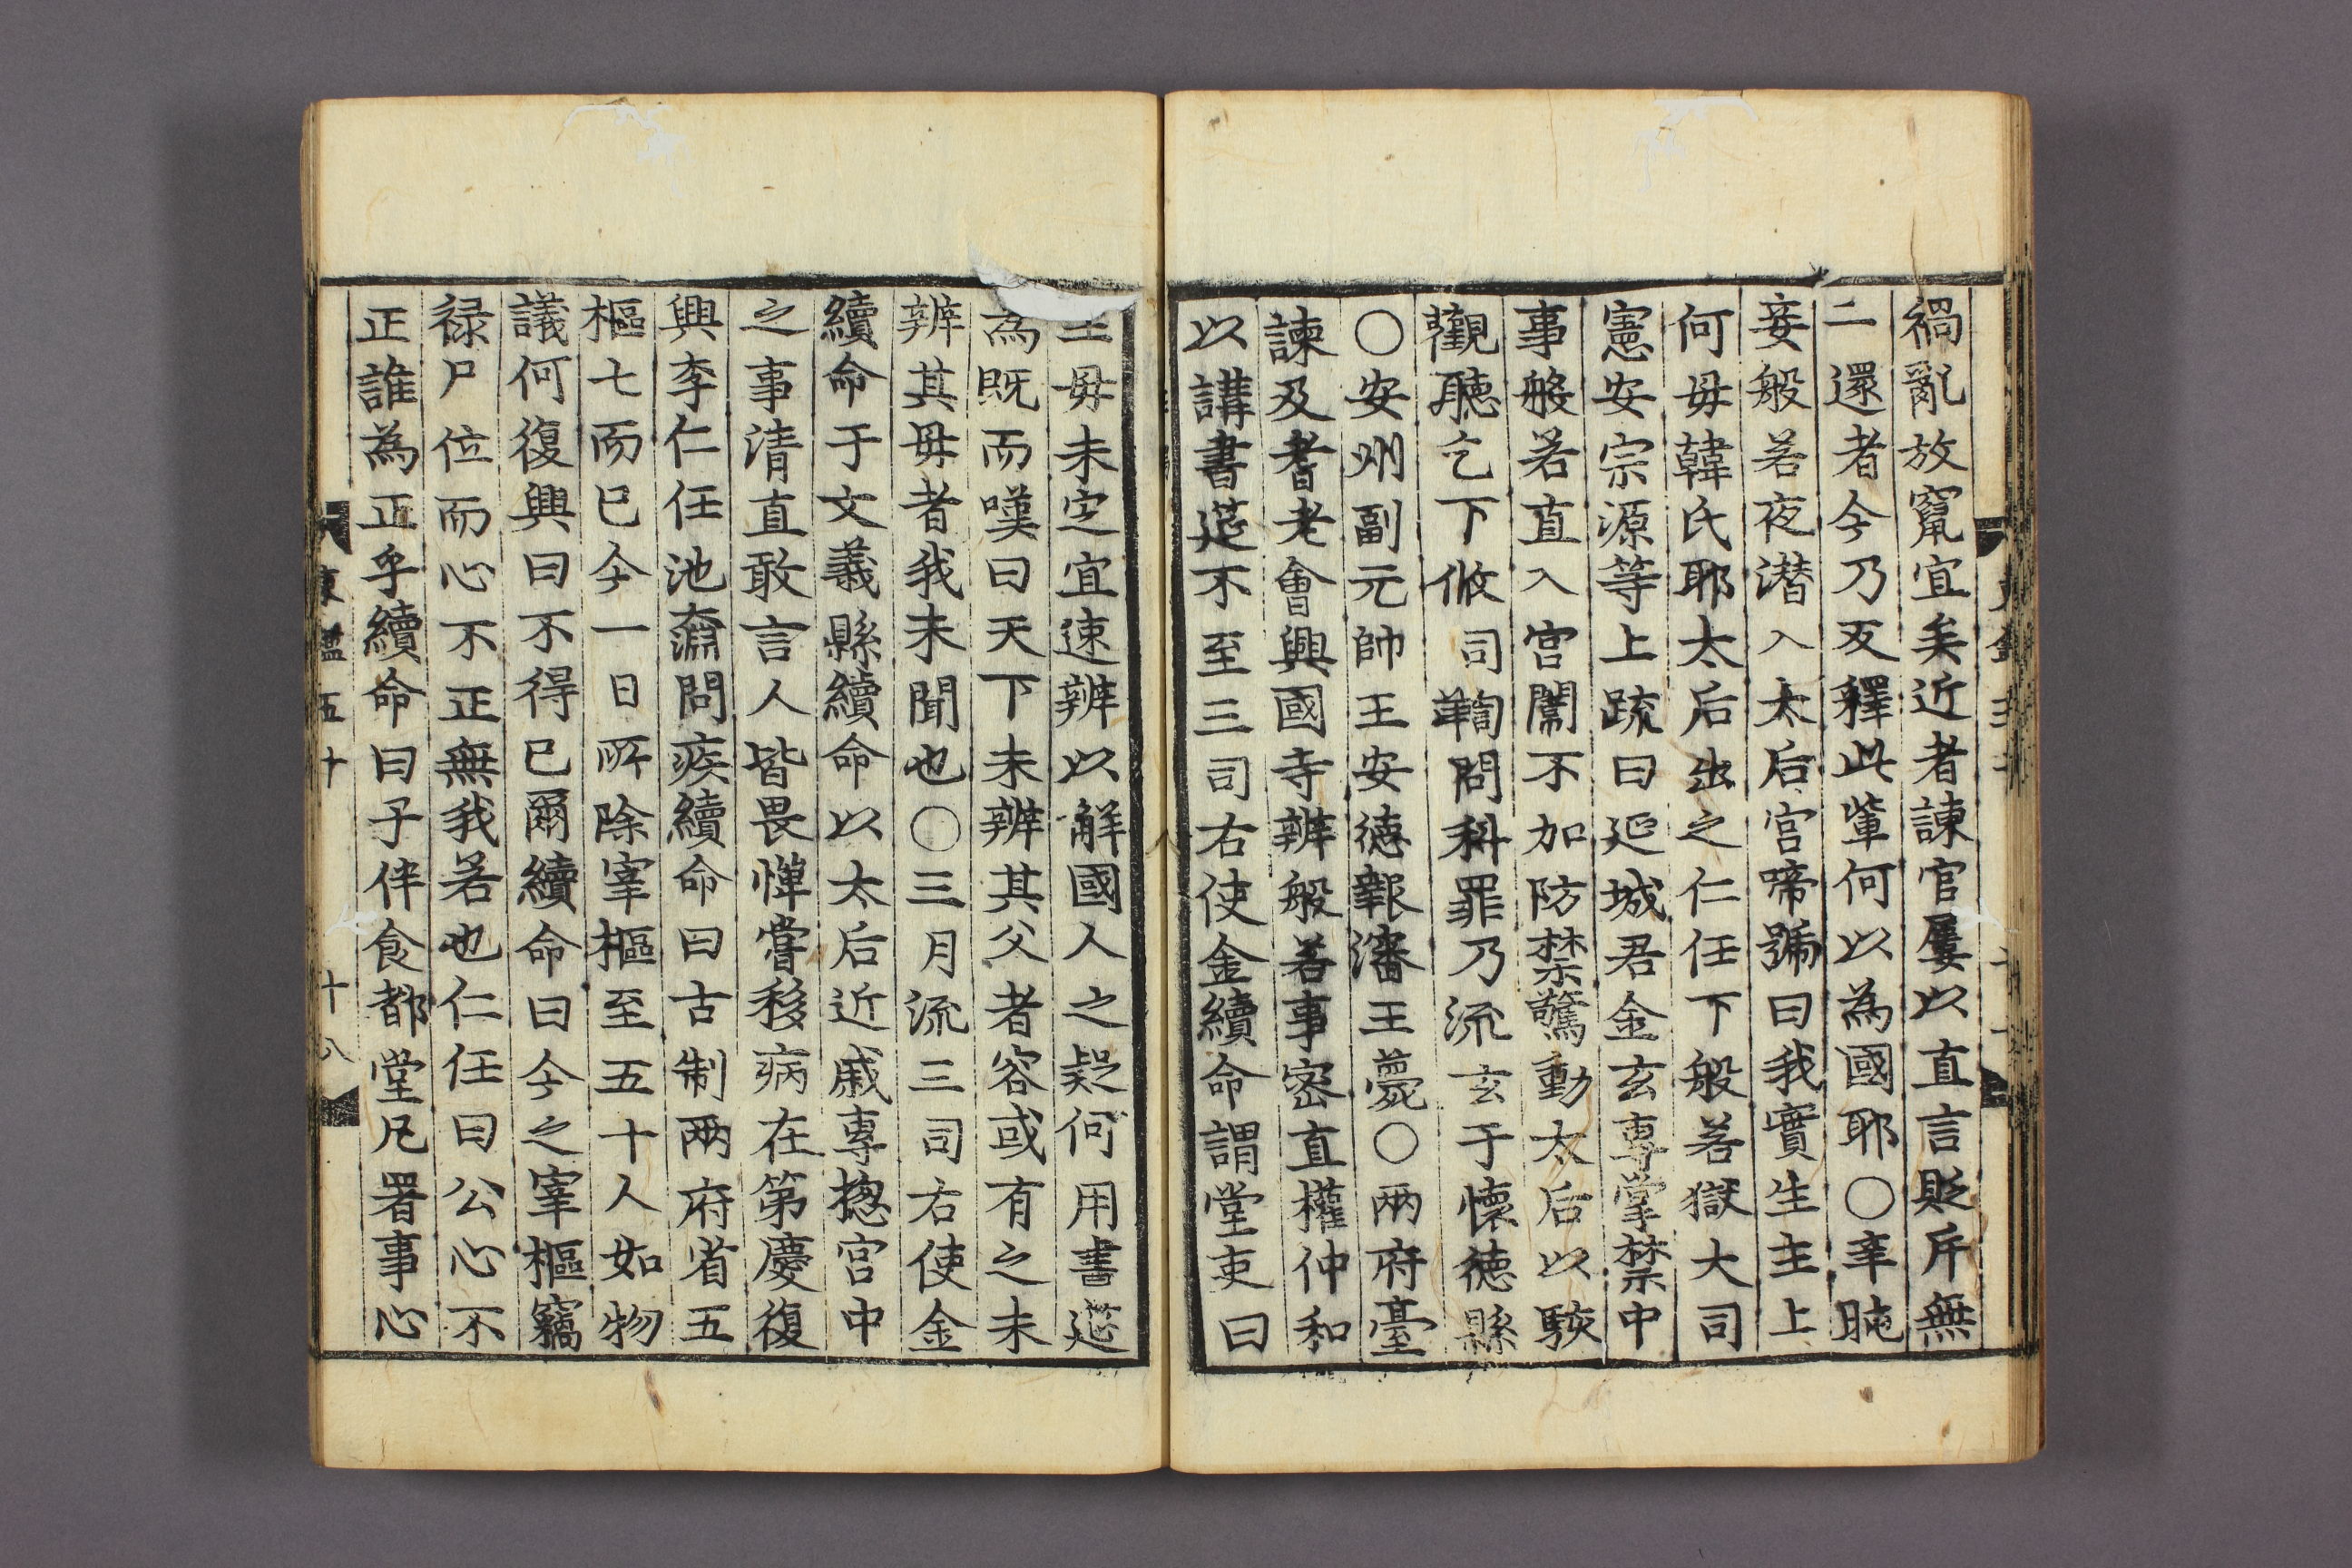 禍亂放竄宜矣近者諫官屢以直言貶斥無
二還者今乃反釋此輩何以為國耶○辛旽
妾般若夜潜入太后宮啼號曰我實生主上
何毋韓氏耶太后出之仁任下般若獄大司
憲安宗源等上疏曰延城君金玄專掌禁中
事般若直入宮闈不加防禁驚動太后以駭
觀聽乞下攸司鞫問科罪乃流玄于懷德縣
○安州副元帥王安德報瀋王薨○兩府臺
諫及耆老會興國寺辨般若事密直權仲和
以講書筵不至三司右使金續命謂堂吏曰
主毋未定宜速辨以解國人之疑何用書筵
為既而嘆曰天下未辨其父者容或有之未
辨其毋者我未聞也○三月流三司右使金
續命于文義縣續命以太后近戚專揔宮中
之事清直敢言人皆畏憚嘗移病在第慶復
興李仁任池奫問疾續命曰古制兩府省五
樞七而已今一日所除宰樞至五十人如物
議何復興曰不得已爾續命曰今之宰樞竊
禄尸位而心不正無我若也仁任曰公心不
正誰為正乎續命曰子伴食都堂凡署事心
東鑑五十 十八